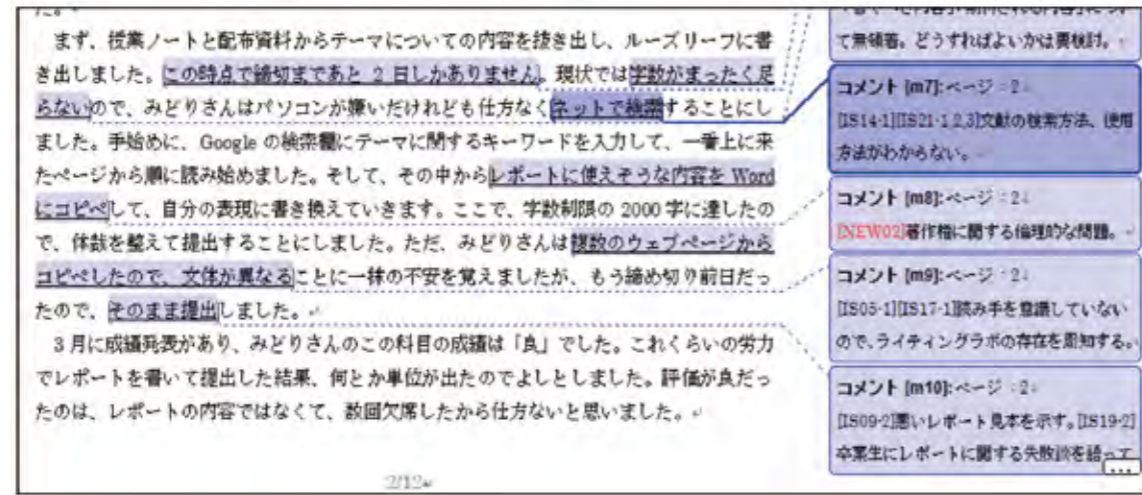 まず、授業ノートと配布資料からテーマについての内容を抜き出し、ルーズリーフに書
き出しました。この時点で締切まであと 2 日しかありません。現状では字数がまったく足
らないので、みどりさんはパソコンが嫌いだけれども仕方なくネットで検索することにし
ました。手始めに、Google の検索欄にテーマに関するキーワードを入力して、一番上に来
たページから順に読み始めました。そして、その中からレポートに使えそうな内容を Word
にコピペして、自分の表現に書き換えていきます。ここで、字数制限の 2000 字に達したの
で、体裁を整えて提出することにしました。ただ、みどりさんは複数のウェブページから
コピペしたので、文体が異なることに一抹の不安を覚えましたが、もう締め切り前日だっ
たので、そのまま提出しました。
3 月に成績発表があり、みどりさんのこの科目の成績は「良」でした。これくらいの労力
でレポートを書いて提出した結果、何とか単位が出たのでよしとしました。評価が良だっ
たのは、レポートの内容ではなくて、数回欠席したから仕方ないと思いました。
2/12
て無頓着。どうすればよいかは要検討。
コメント [m7]: ページ : 2
[IS14-1][IS21-1,2,3]文献の検索方法、使用
方法がわからない。
コメント [m8]: ページ : 2
[NEW02]著作権に関する倫理的な問題。
コメント [m9]: ページ : 2
[IS05-1][IS17-1]読み手を意識していない
ので、ライティングラボの存在を周知する。
コメント [m10]: ページ : 2
[IS09-2]悪いレポート見本を示す。[IS19-2]
卒業生にレポートに関する失敗談を語って
...